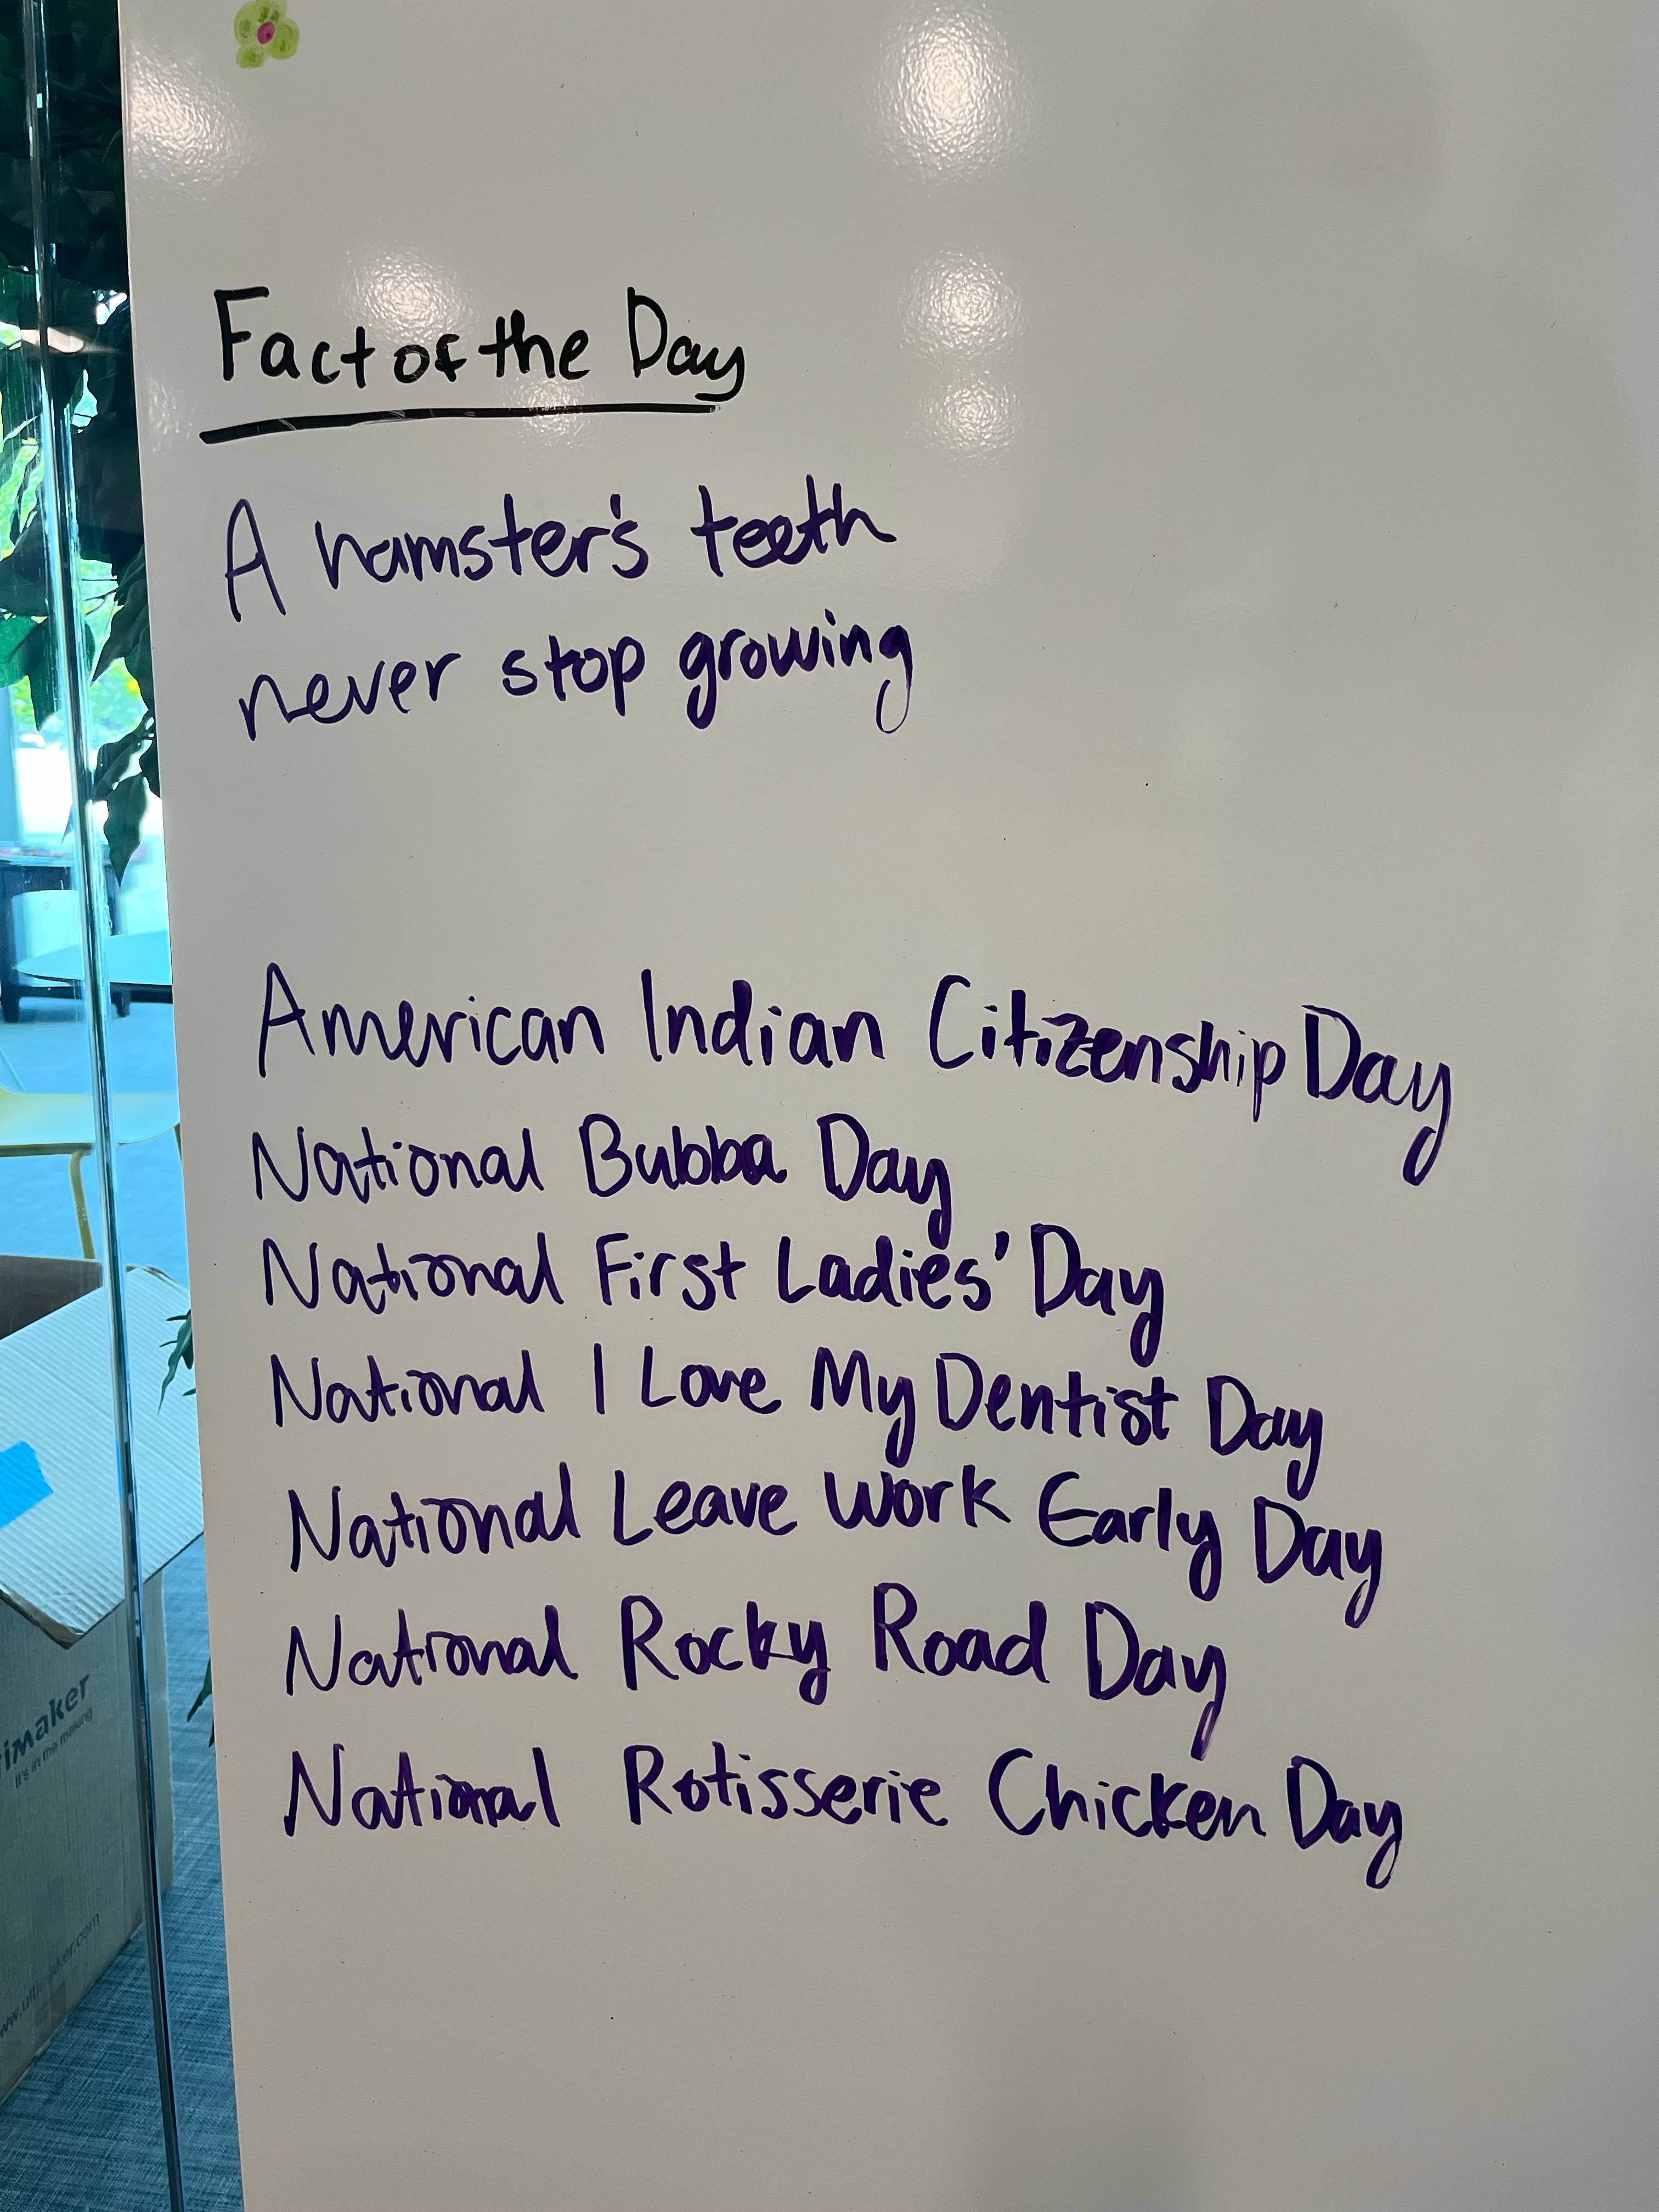 Fact of the Day
A hamster's teeth
never stop growing
American Indian Citizenship Day
National Bubba Day
National First Ladies' Day
National I Love My Dentist Day
National Leave Work Early Day
National Rocky Road Day
National Rotisserie Chicken Day
imaker
It's in the making